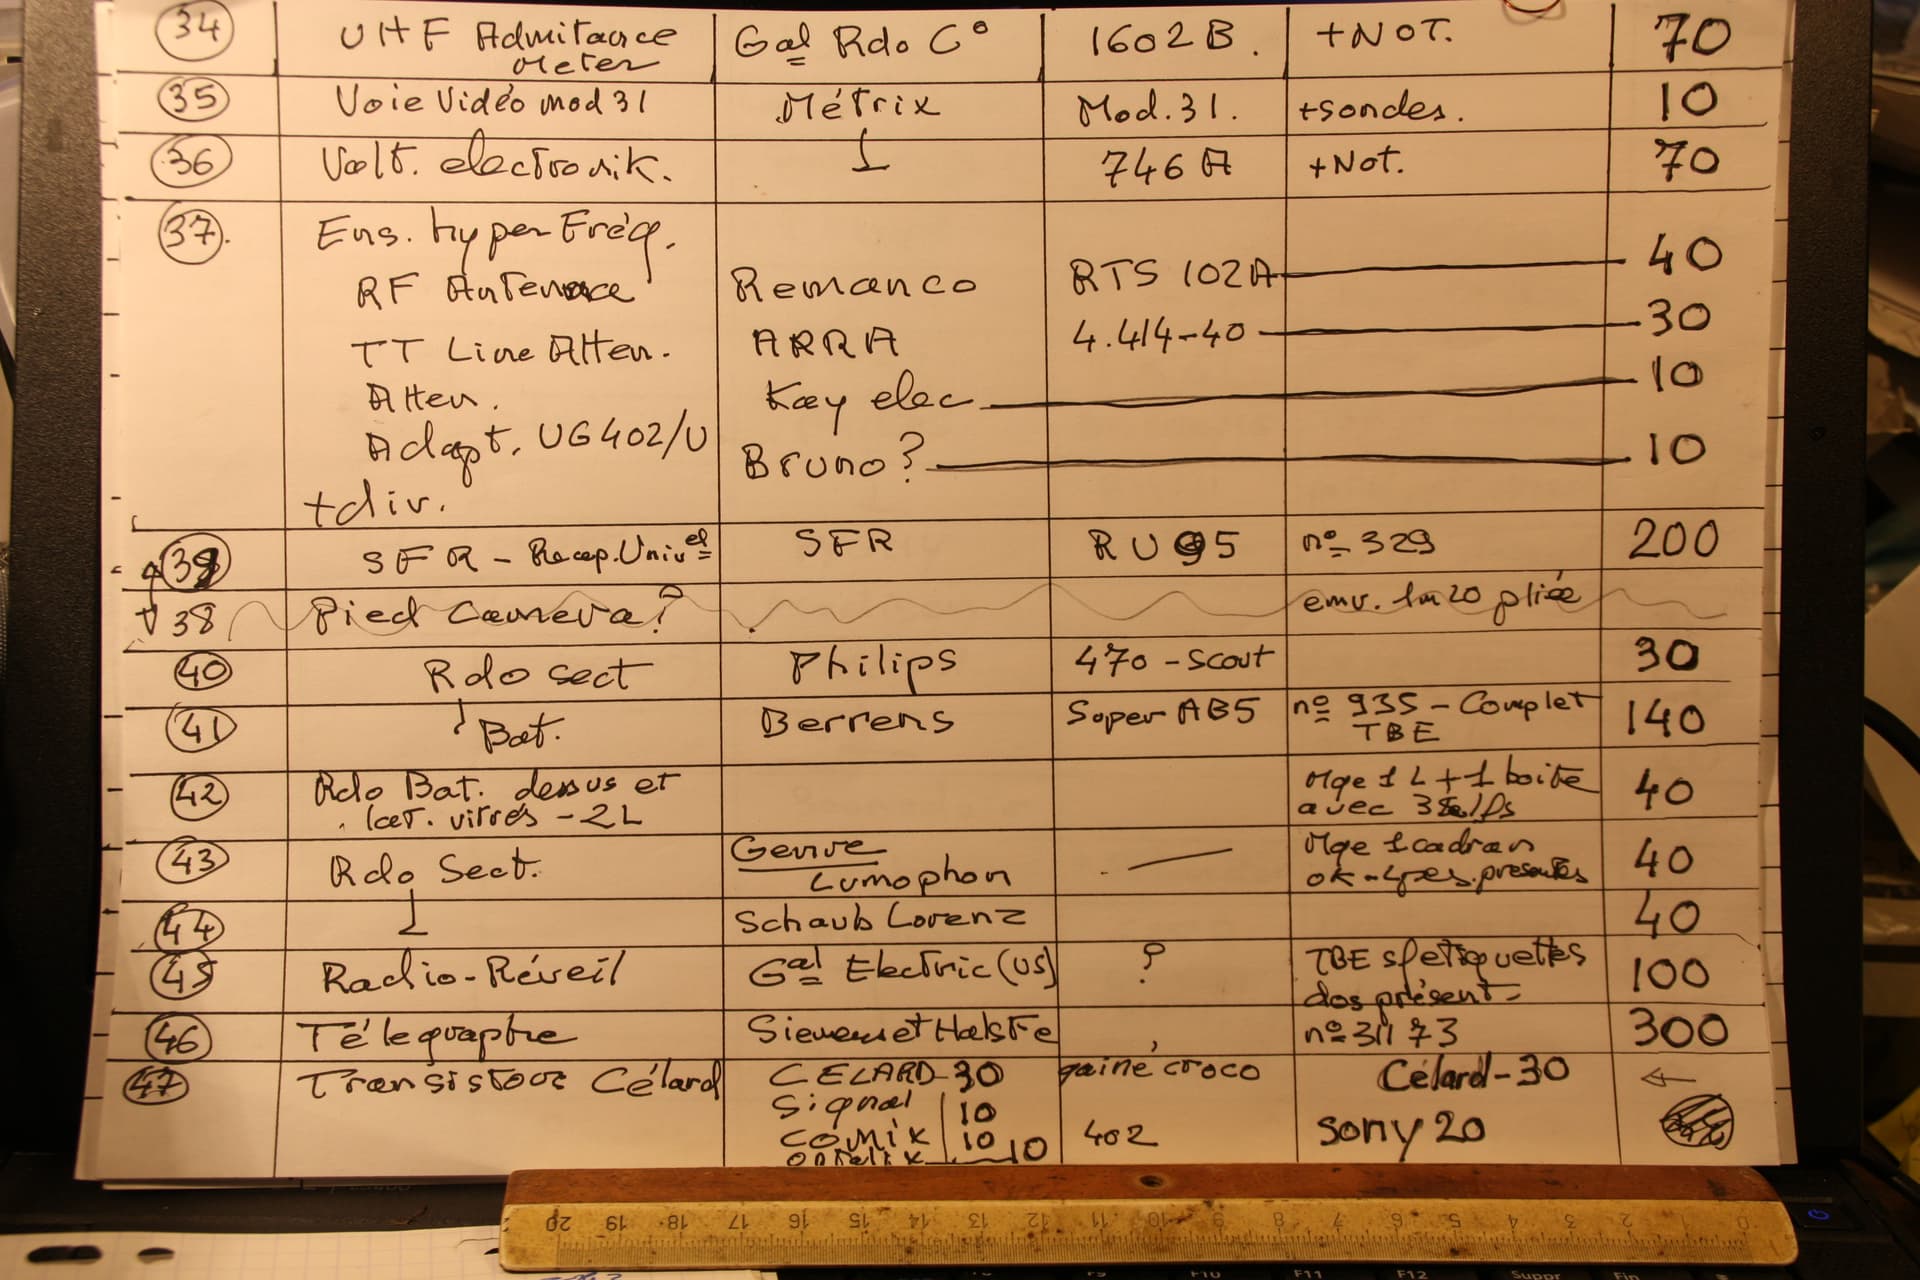 34 UHF Admitance Meter Gal Rdo C° 1602B. +NOT. 70
35 Voie Vidéo Mod 31 Métrix Mod.31. +sondes. 10
36 Volt. electronik. 746 A +Not. 70
37. Ens. hyper Fréq.
RF Antennace Remanco RTS 102A 40
TT Line Atten. ARRA 4.414-40 30
Atten. Kay elec 10
Adapt. UG402/U Bruno? 10
+div.
39 SFR - Recep. Univel SFR RU95 nº 329 200
38 Pied Camera? env. 1m20 pliée
40 Rdo sect Philips 470 - Scout 30
41 Bat. Berrens Super AB5 nº 935 - Complet TBE 140
42 Rdo Bat. dessus et lat. vitrés - 2L Mqe 1L + 1 boite avec 3 Selfs 40
43 Rdo Sect. Genre Lumophon Mqe 1 cadran ok - présentes 40
44 Schaub Lorenz 40
45 Radio-Réveil Gal Electric (US) ? TBE etiquettes dos présent 100
46 Télégraphe Siemens et Halske nº 31173 300
47 Transistour Célard CELARD 30 gainé croco Célard - 30 ←
Signal 10
COMIX 10 402 sony 20
10
20 19 18 17 16 15 14 13 12 11 10 9 8 7 6 5 4 3 2 1 0
F9 F10 F11 F12 Suppr Fin